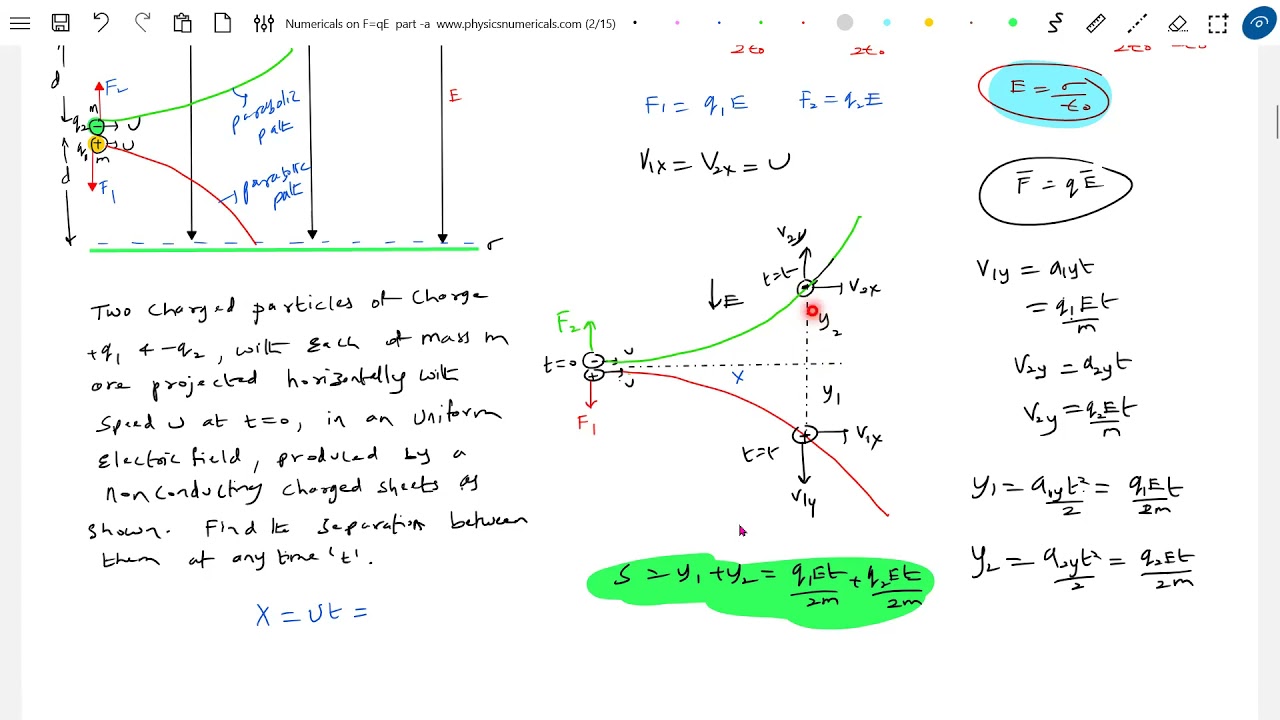 Numericals on F=qE part -a www.physicsnumericals.com (2/15)
2ε₀ 2ε₀ 2ε₀ ε₀
d F₂ m q₂ - U
q₁ + U m
d F₁
parabolic path
parabolic path
E
σ
F₁ = q₁E F₂ = q₂E
V₁x = V₂x = U
E = σ/ε₀
F̄ = qĒ
V₂y
t=t V₂x
↓E
F₂ y₂
t=0 - U
+ U X
F₁ y₁
+ V₁x
t=t
V₁y
V₁y = a₁yt
= q₁Et/m
V₂y = a₂yt
V₂y = q₂Et/m
y₁ = a₁yt²/2 = q₁Et/2m
y₂ = a₂yt²/2 = q₂Et/2m
S = y₁ + y₂ = q₁Et/2m + q₂Et/2m
Two charged particles of charge
+q₁ & -q₂, with each of mass m
are projected horizontally with
speed u at t=0, in an uniform
electric field, produced by a
nonconducting charged sheets as
shown. Find the separation between
them at any time 't'.
X = Ut =